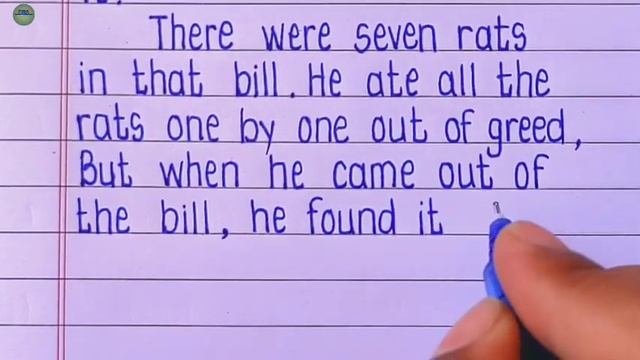 There were seven rats
in that bill. He ate all the
rats one by one out of greed,
But when he came out of
the bill, he found it